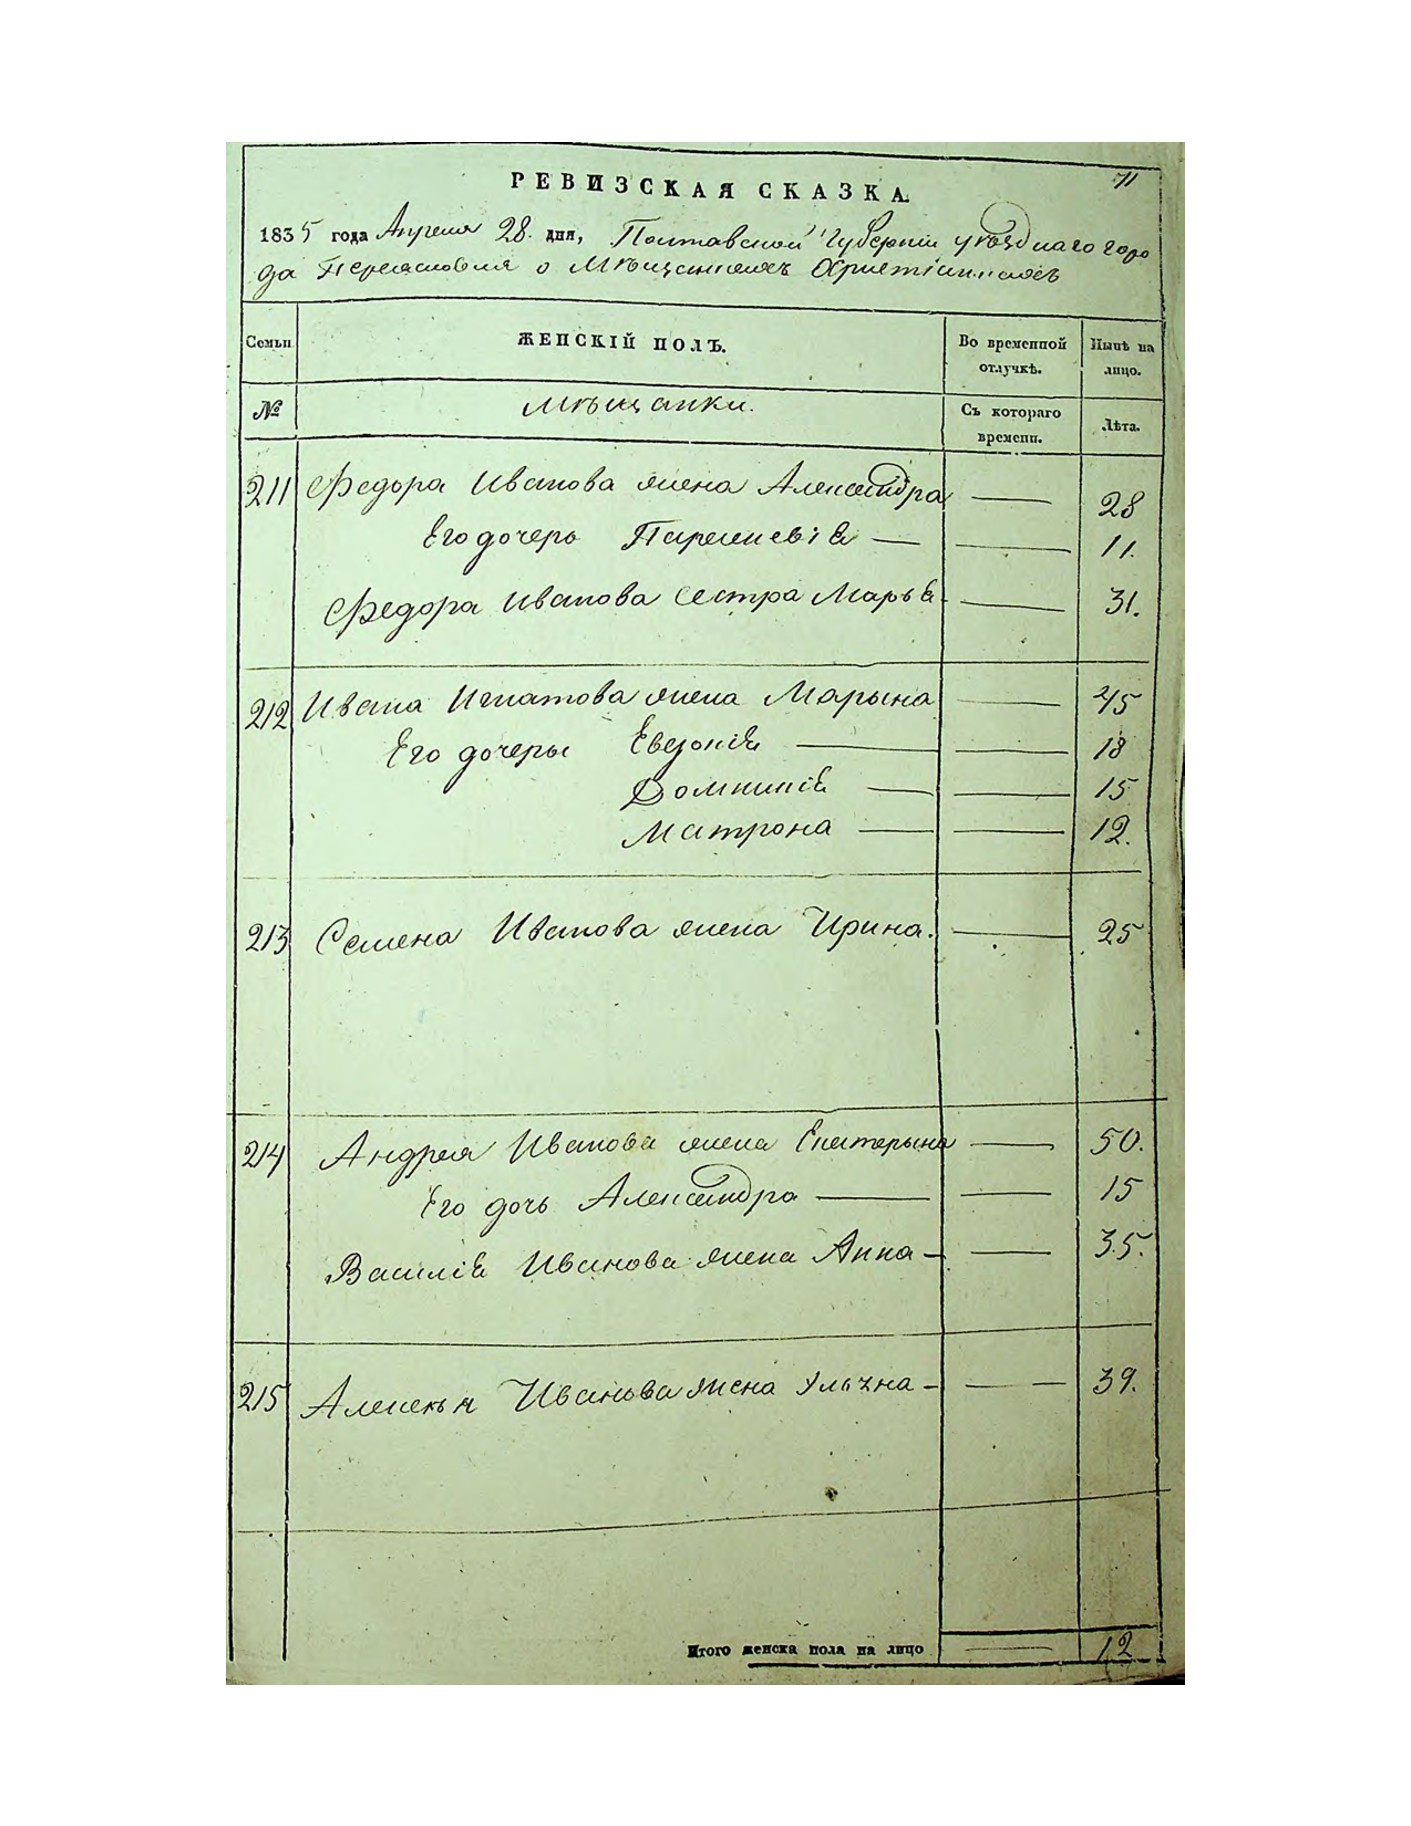 71
РЕВИЗСКАЯ СКАЗКА.
1835 года Апреля 28. дня, Полтавской Губерніи уѣзднаго горо
да Переяславля о Мѣщанахъ Христіанахъ
Семьи ЖЕНСКІЙ ПОЛЪ. Во временной отлучкѣ. Нынѣ на лицо.
№ Мѣщанки. Съ котораго времени. Лѣта.
211 Федора Иванова жена Александра — 28
Его дочерь Параскевія — — 11.
Федора Иванова сестра Марья — 31.
212 Ивана Игнатова жена Марына — 45
Его дочеры Евдокія — — 18
Домникія — — 15
Матрона — — 12.
213 Семена Иванова жена Ирина. — 25
214 Андрея Иванова жена Екатерына — 50.
Его дочь Александра — — 15
Василія Иванова жена Анна — — 35.
215 Алексѣя Иванова жена Ульяна — — 39.
Итого женска пола на лицо — 12